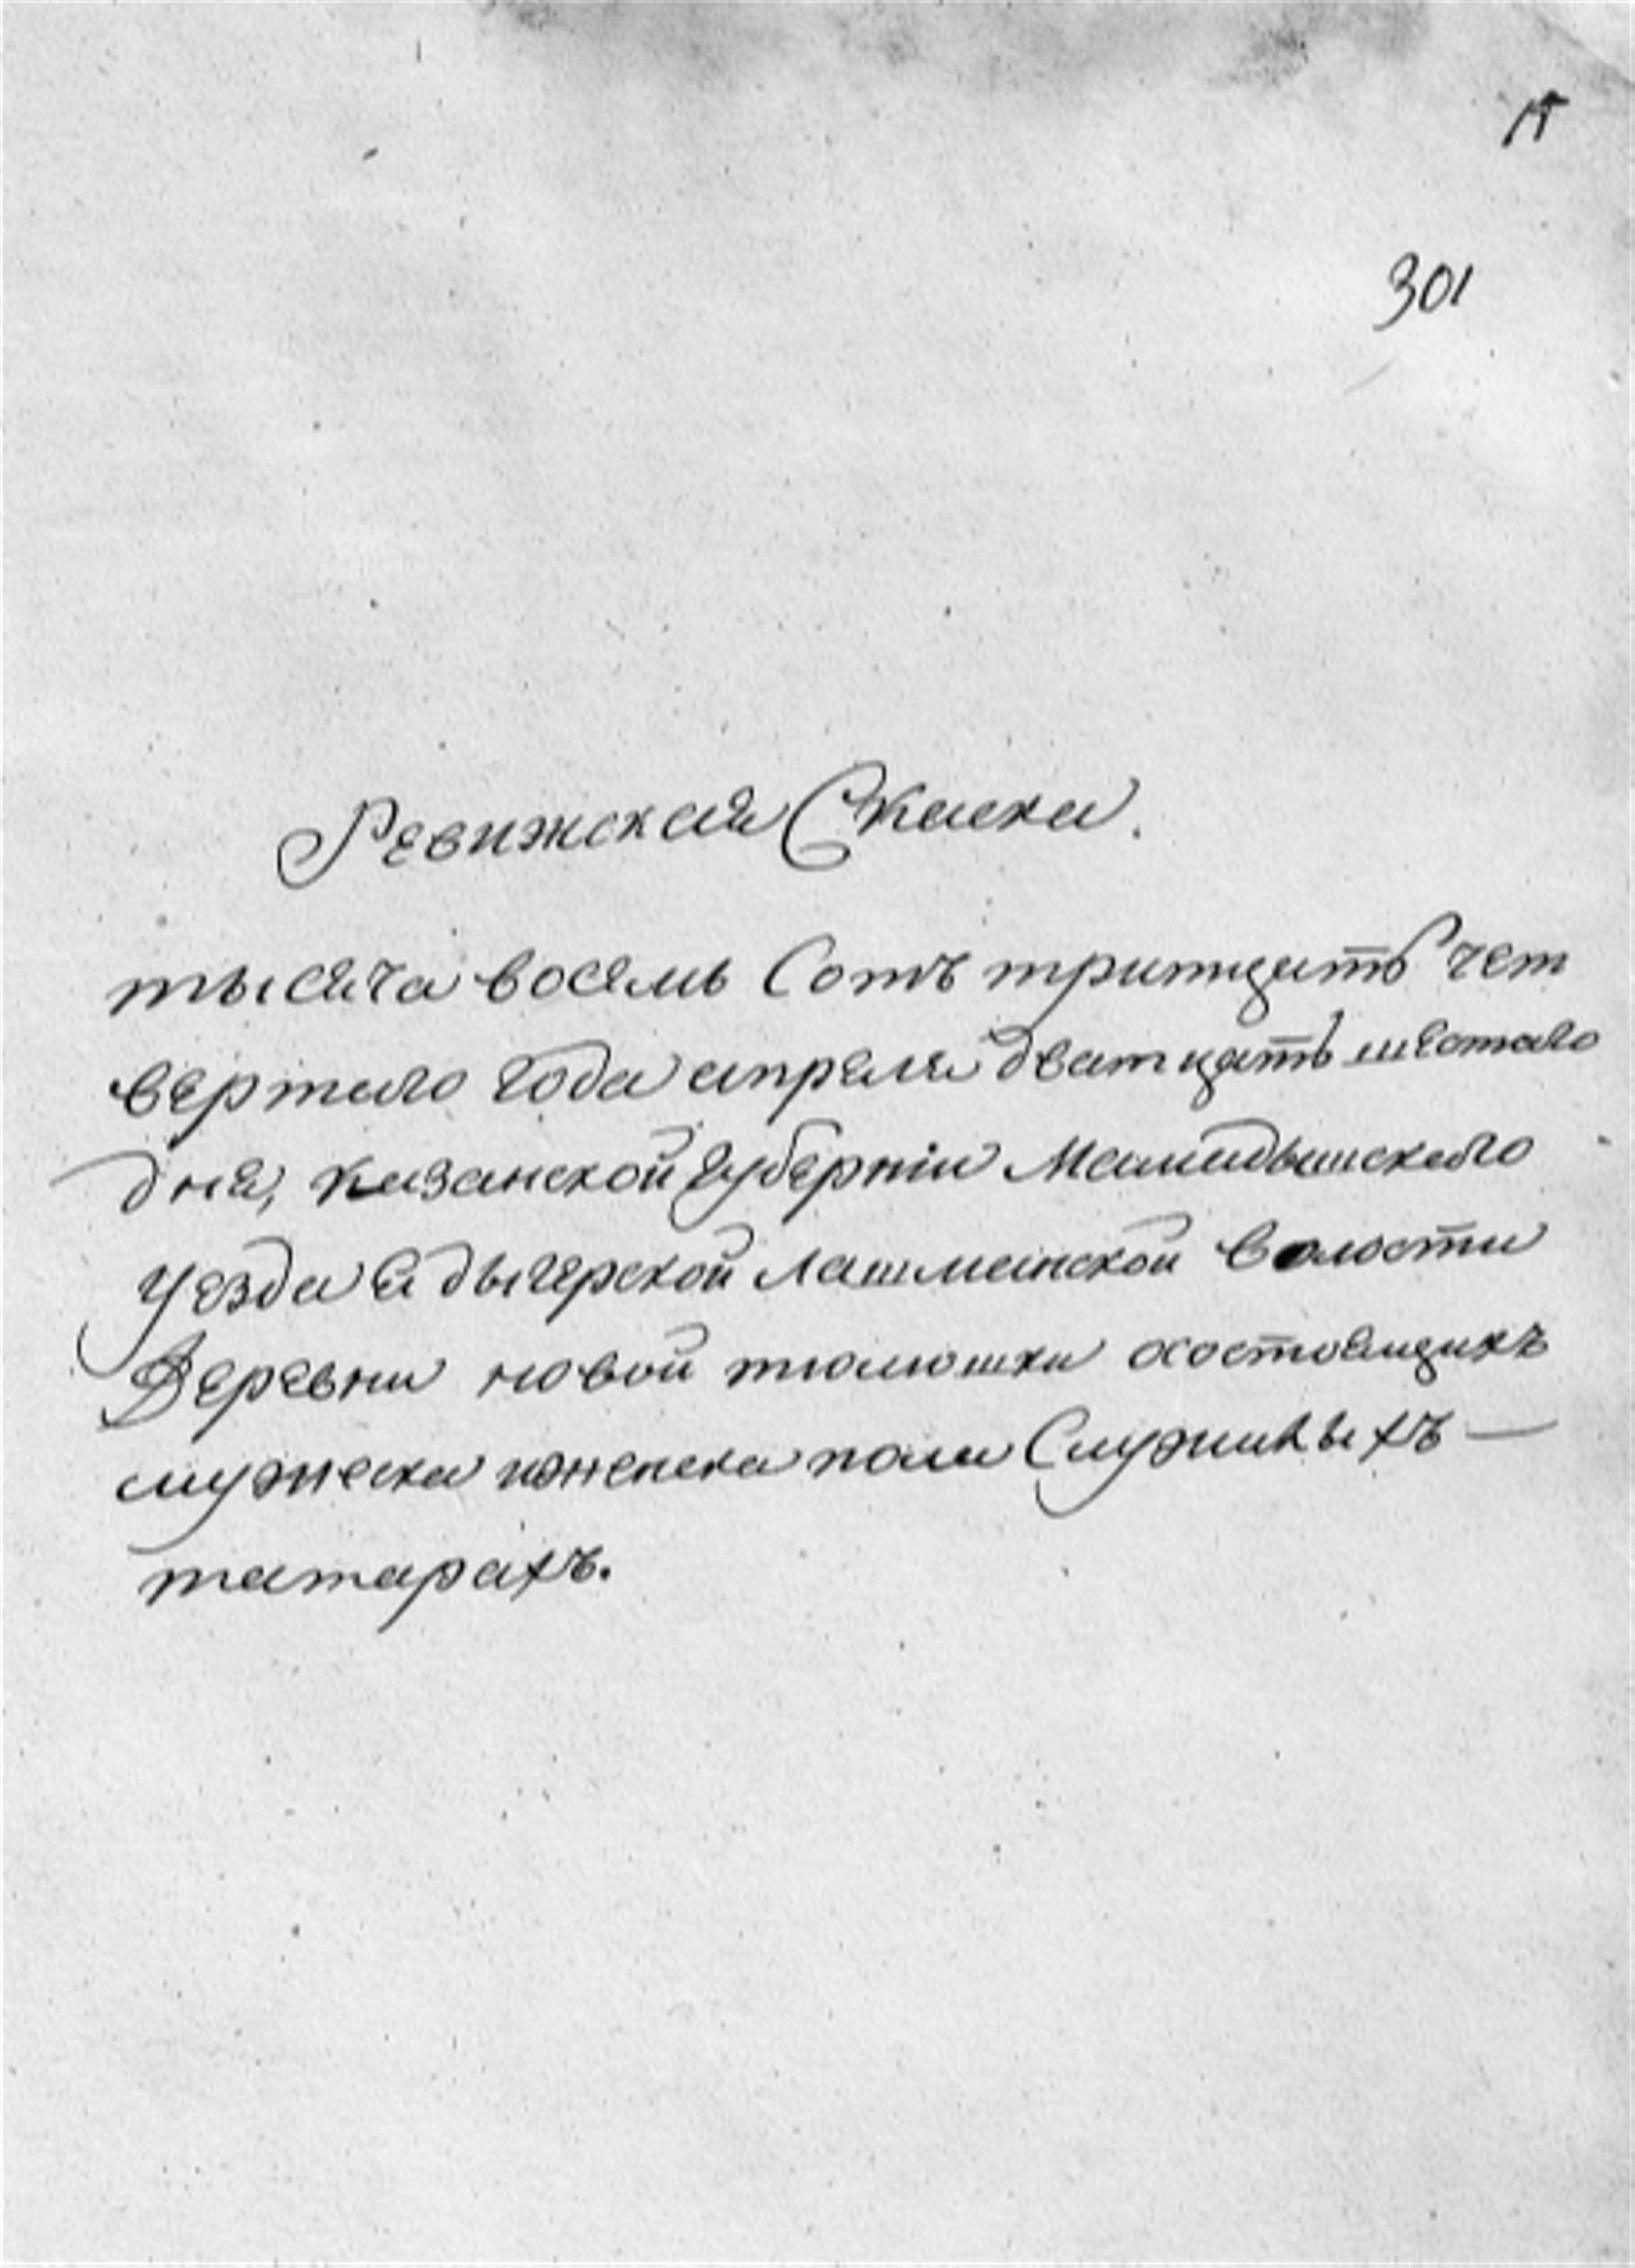 301
Ревижская Скаска.
тысяча восемь Сотъ тритцать чет
вертаго года апреля дватцать шестаго
дня, казанской губерніи Мамадышскаго
уезда Адычерской лашманской волости
Деревни новой тюлюшки осостоящихъ
мужеска иженска пола Служивыхъ —
татарахъ.